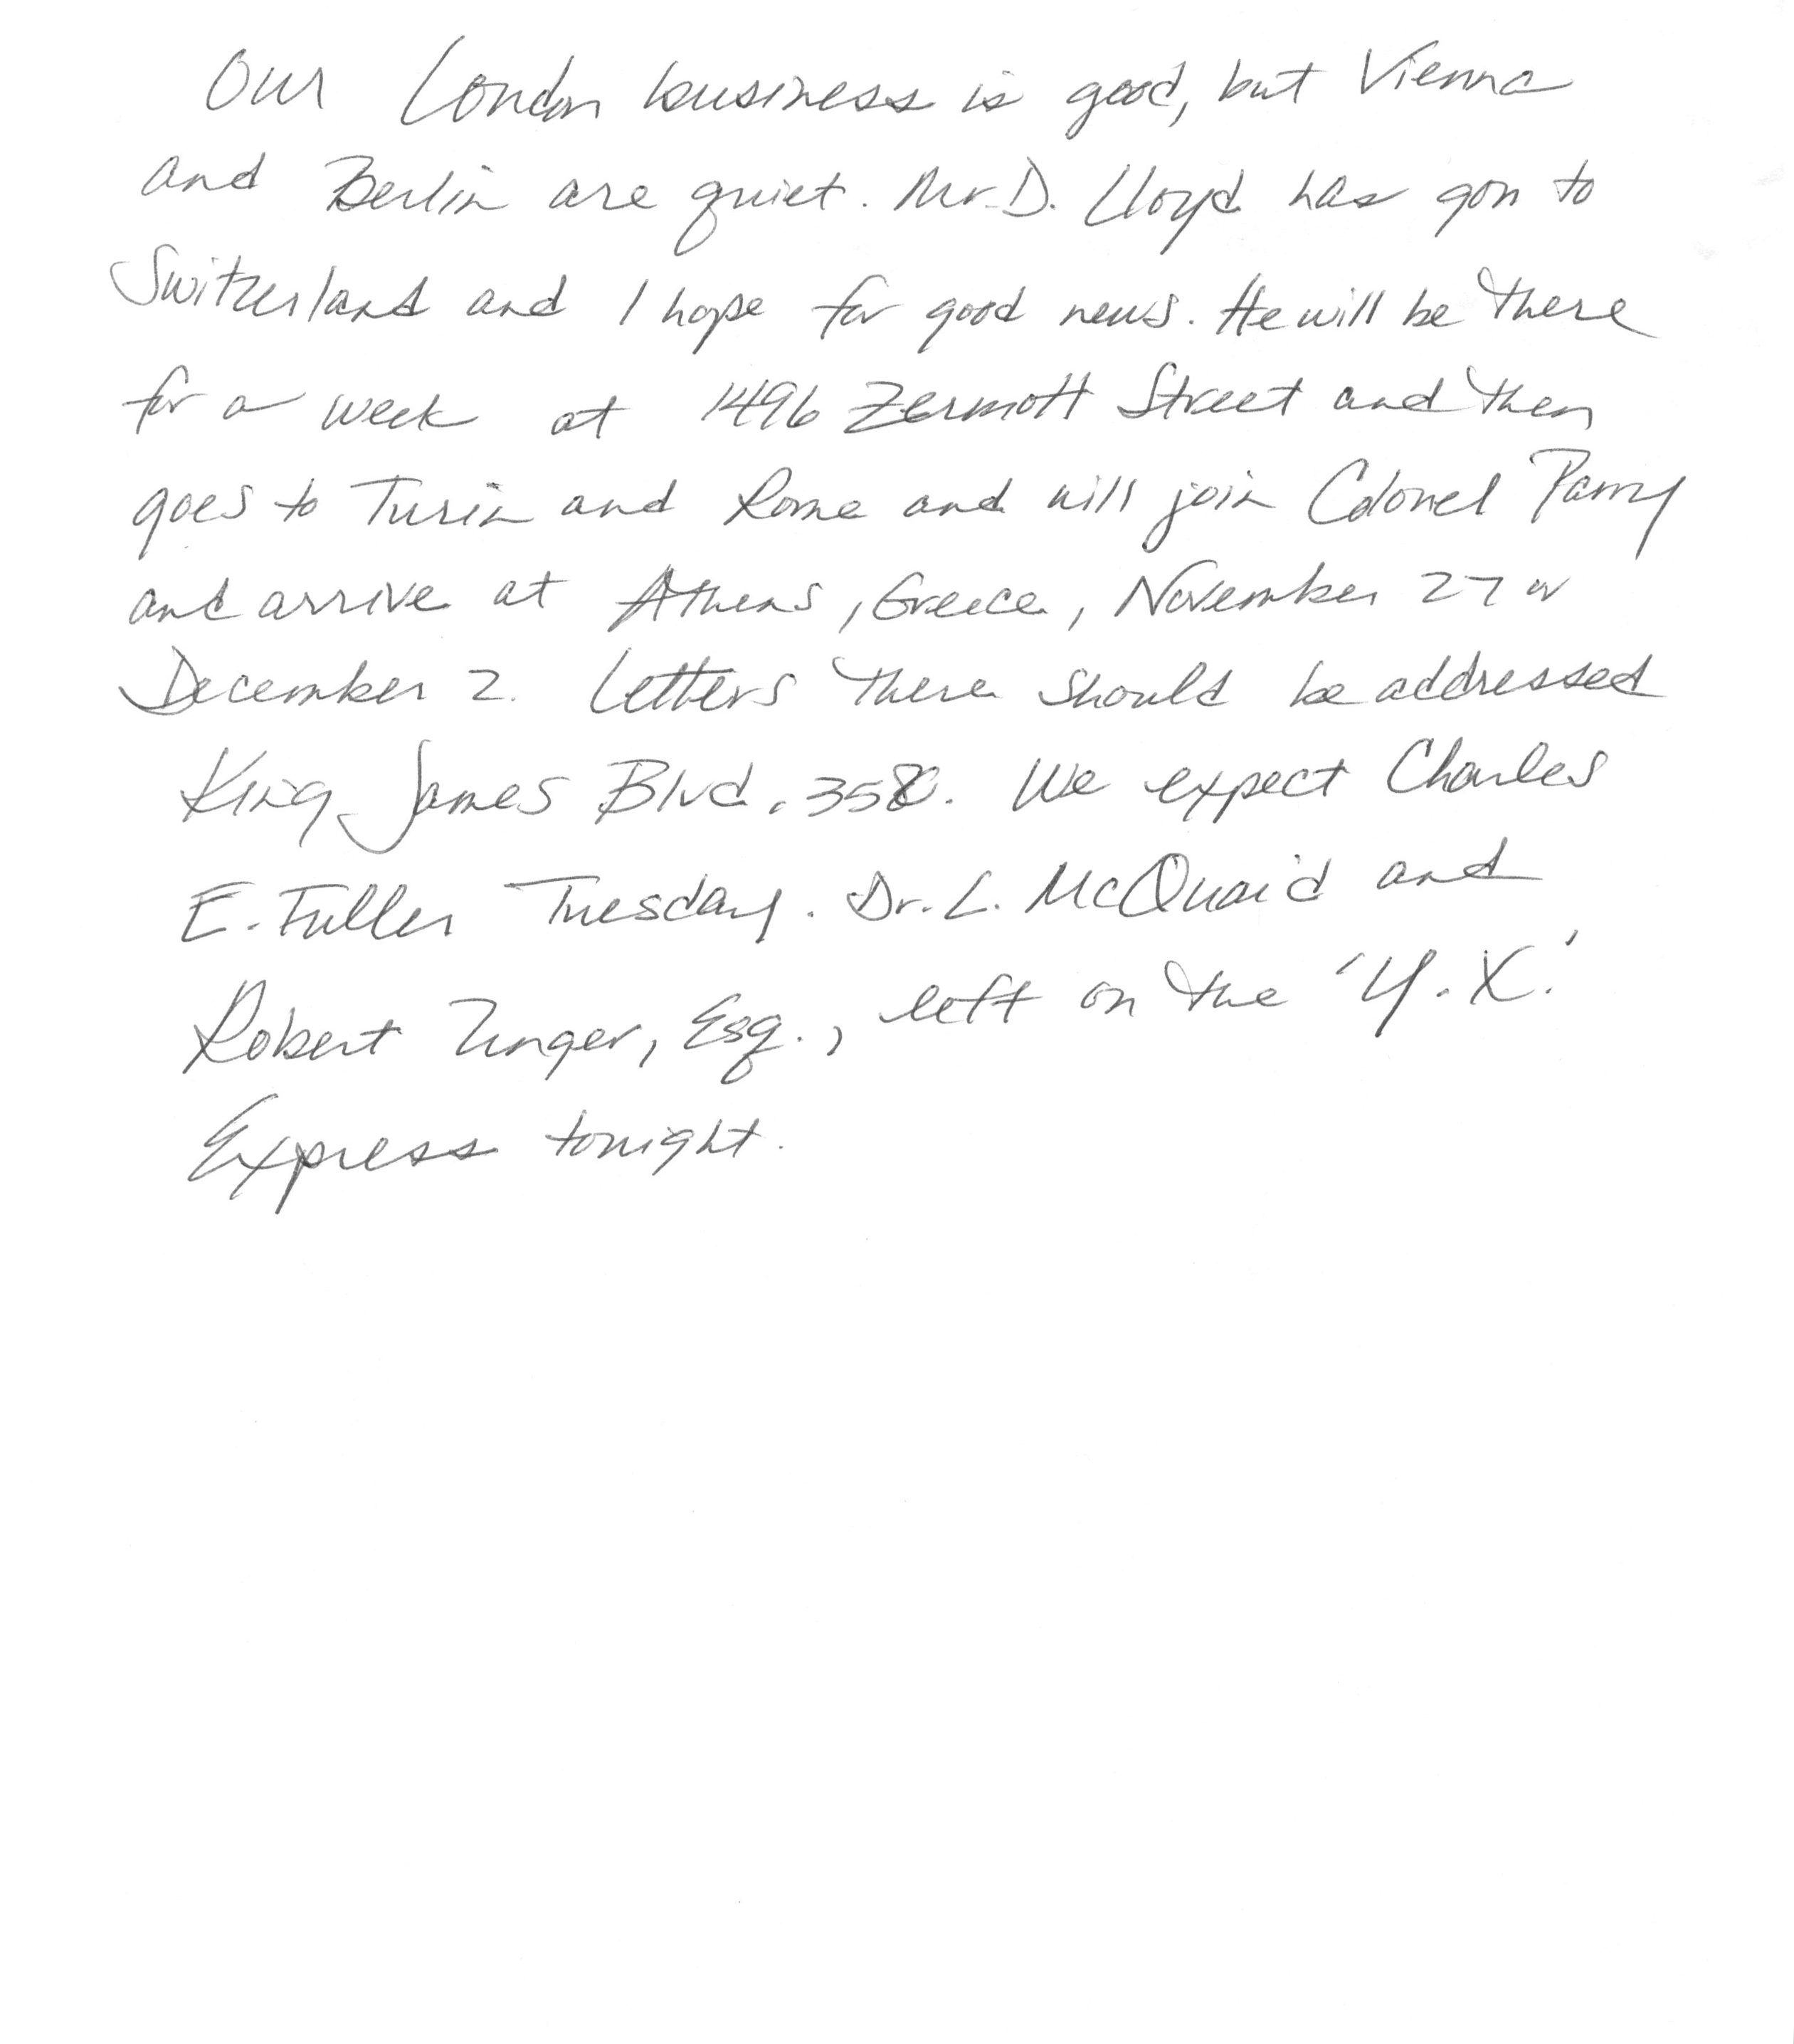 Our London business is good, but Vienna
and Berlin are quiet. Mr. D. Lloyd has gon to
Switzerland and I hope for good news. He will be there
for a week at 1496 Zermott Street and then
goes to Turin and Rome and will join Colonel Parry
and arrive at Athens, Greece, November 27 or
December 2. Letters there should be addressed
King James Blvd. 3580. We expect Charles
E. Fuller Tuesday. Dr. L. McQuaid and
Robert Unger, Esq., left on the 'Y. X.'
Express tonight.